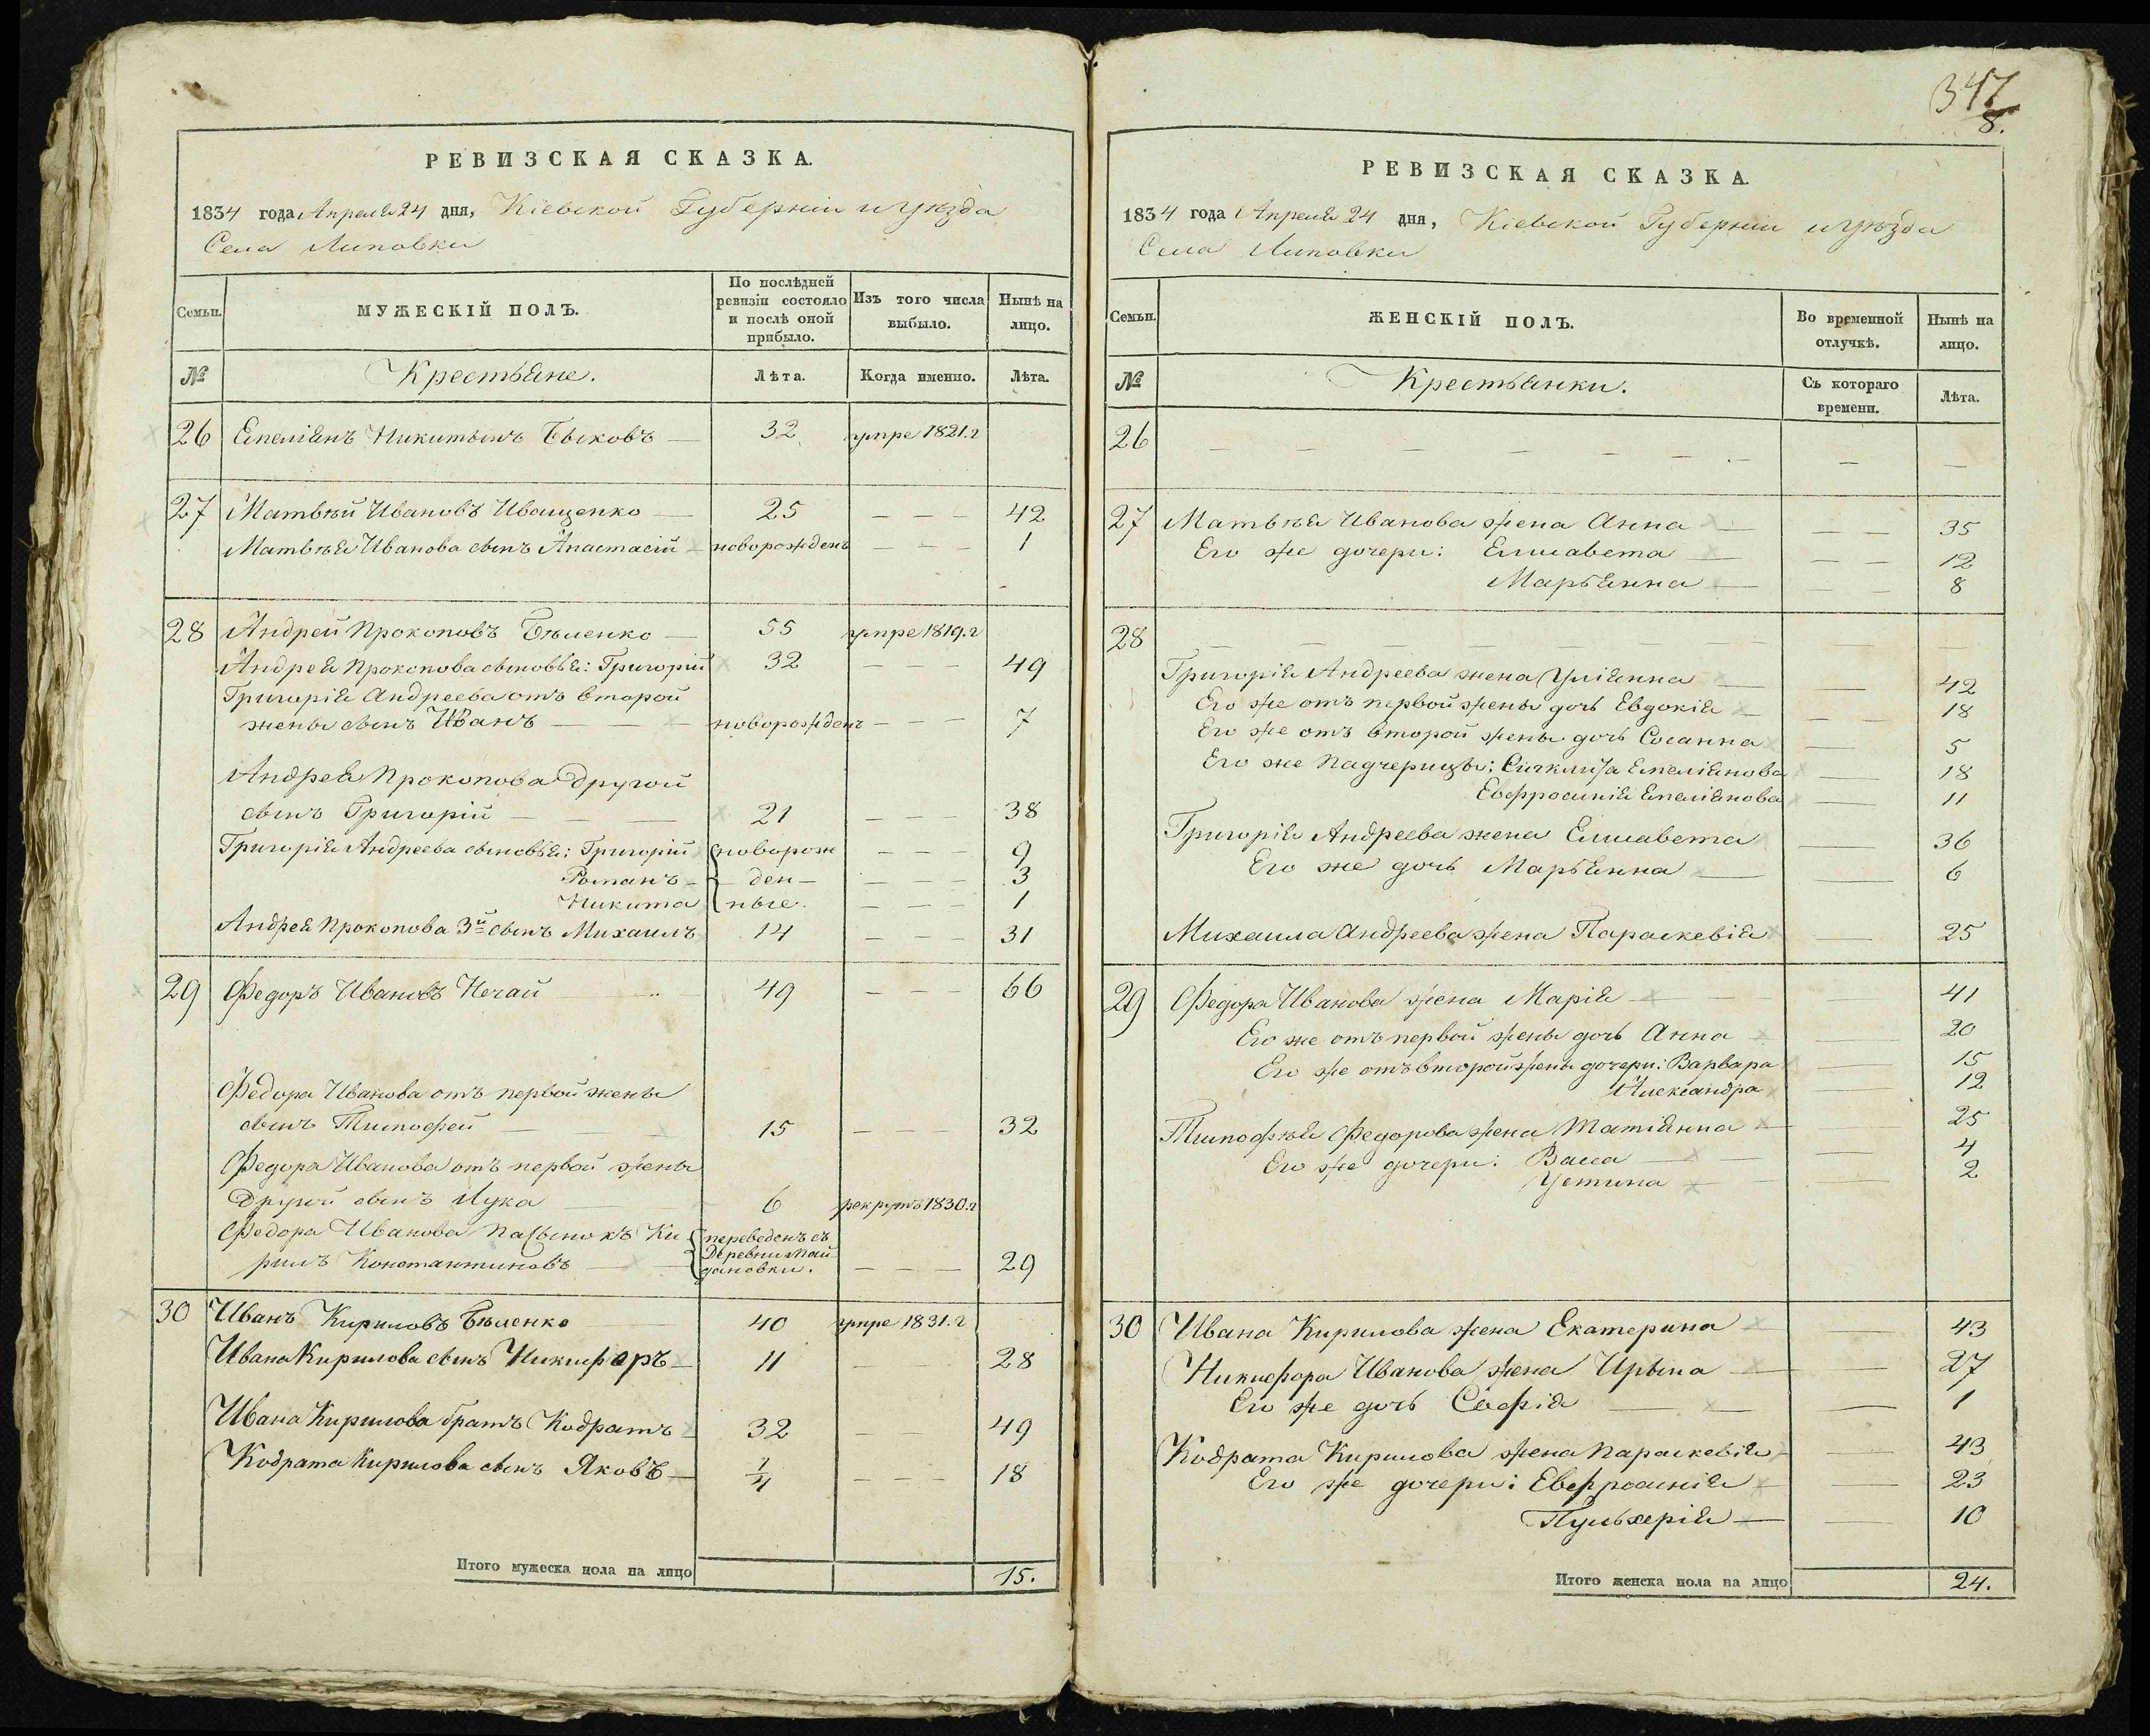 РЕВИЗСКАЯ СКАЗКА.
1834 года Апреля 24 дня, Кіевской Губерніи и Уѣзда
Села Липовки
Семьи.
МУЖЕСКІЙ ПОЛЪ.
По послѣдней ревизіи состояло и послѣ оной прибыло.
Изъ того числа выбыло.
Нынѣ на лицо.
№ Крестьяне. Лѣта. Когда именно. Лѣта.
26 Емеліянъ Никитинъ Быковъ — 32 умре 1821.г
27 Матвѣй Ивановъ Иващенко — 25 — — — 42
Матвѣя Иванова сынъ Анастасій — новорожденъ — — — 1
28 Андрей Прокоповъ Бѣленко — 55 умре 1819.г
Андрея Прокопова сыновья: Григорій 32 — — — 49
Григорія Андреева отъ второй
жены сынъ Иванъ — — — новорожденъ — — — 7
Андрея Прокопова другой
сынъ Григорій — — — 21 — — — 38
Григорія Андреева сыновья: Григорій новорож — — — 9
Романъ — ден — — — — 3
Никита ные. — — — 1
Андрея Прокопова 3й сынъ Михаилъ 14 — — — 31
29 Федоръ Ивановъ Нечай 49 — — — 66
Федора Иванова отъ первой жены
сынъ Тимофей — 15 — — — 32
Федора Иванова отъ первой жены
другой сынъ Лука — 6 рекрутъ 1830.г
Федора Иванова пасынокъ Ки- переведенъ съ
рилъ Константиновъ — деревни Май-
дановки. — — — 29
30 Иванъ Кириловъ Бѣленко 40 умре 1831.г
Ивана Кирилова сынъ Никифоръ — 11 — — 28
Ивана Кирилова братъ Кодратъ 32 — — 49
Кодрата Кирилова сынъ Яковъ — 1/4 — — — 18
Итого мужеска пола на лицо 15.
347
8.
РЕВИЗСКАЯ СКАЗКА.
1834 года Апреля 24 дня, Кіевской Губерніи и Уѣзда
Села Липовки
Семьи.
ЖЕНСКІЙ ПОЛЪ.
Во временной отлучкѣ.
Нынѣ на лицо.
№ Крестьянки. Съ котораго времени. Лѣта.
26 — — — — — — — — —
27 Матвѣя Иванова жена Анна — — — 35
Его же дочери: Елисавета — — — 12
Марьянна — — — 8
28 — — — — — — — —
Григорія Андреева жена Уліянна — — 42
Его же отъ первой жены дочь Евдокія — — — 18
Его же отъ второй жены дочь Сосанна — 5
Его же падчерицы: Емеліянова — 18
Евфросинія Емеліянова — 11
Григорія Андреева жена Елисавета — 36
Его же дочь Марьянна — — 6
Михаила Андреева жена Параскевія — 25
29 Федора Иванова жена Марія — — 41
Его же отъ первой жены дочь Анна — 20
Его же отъ второй жены дочери: Варвара — 15
Александра — 12
Тимофѣя Федорова жена Татіянна — — 25
Его же дочери: Васса — — 4
Устина — — 2
30 Ивана Кирилова жена Екатерина — 43
Никифора Иванова жена Ирына — — 27
Его же дочь Софія — — 1
Кодрата Кирилова жена Параскевія — — 43
Его же дочери: Евфросинія — — 23
Пульхерія — — 10
Итого женска пола на лицо 24.